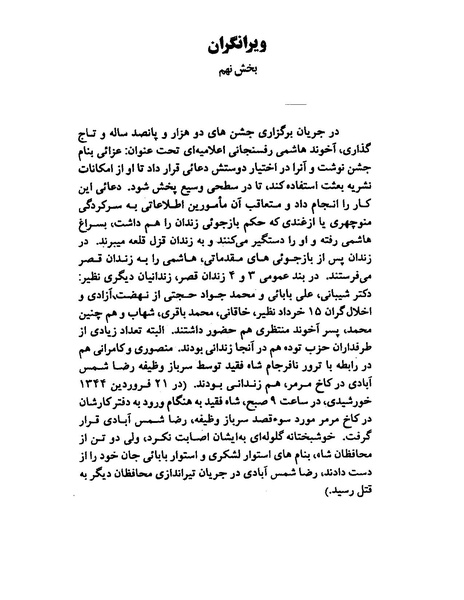 ویرانگران
بخش نهم
در جریان برگزاری جشن های دو هزار و پانصد ساله و تاج
گذاری، آخوند هاشمی رفسنجانی اعلامیه‌ای تحت عنوان: عزائی بنام
جشن نوشت و آنرا در اختیار دوستش دعائی قرار داد تا او از امکانات
نشریه بعثت استفاده کند، تا در سطحی وسیع پخش شود. دعائی این
کار را انجام داد و متعاقب آن مأمورین اطلاعاتی به سرکردگی
منوچهری یا ازغندی که حکم بازجوئی زندان را هم داشت، بسراغ
هاشمی رفته و او را دستگیر می‌کنند و به زندان قزل قلعه میبرند. در
زندان پس از بازجوئی های مقدماتی، هاشمی را به زندان قصر
می‌فرستند. در بند عمومی ۳ و ۴ زندان قصر، زندانیان دیگری نظیر:
دکتر شیبانی، علی بابائی و محمد جواد حجتی از نهضت‌آزادی و
اخلال گران ۱۵ خرداد نظیر، خاقانی، محمد باقری، شهاب و هم چنین
محمد، پسر آخوند منتظری هم حضور داشتند. البته تعداد زیادی از
طرفداران حزب توده هم در آنجا زندانی بودند. منصوری و کامرانی هم
در رابطه با ترور نافرجام شاه فقید توسط سرباز وظیفه رضا شمس
آبادی در کاخ مرمر، هم زندانی بودند. (در ۲۱ فروردین ۱۳۴۴
خورشیدی، در ساعت ۹ صبح، شاه فقید به هنگام ورود به دفتر کارشان
در کاخ مرمر مورد سوءقصد سرباز وظیفه، رضا شمس آبادی قرار
گرفت. خوشبختانه گلوله‌ای به‌ایشان اصابت نکرد، ولی دو تن از
محافظان شاه، بنام های استوار لشکری و استوار بابائی جان خود را از
دست دادند، رضا شمس آبادی در جریان تیراندازی محافظان دیگر به
قتل رسید.)